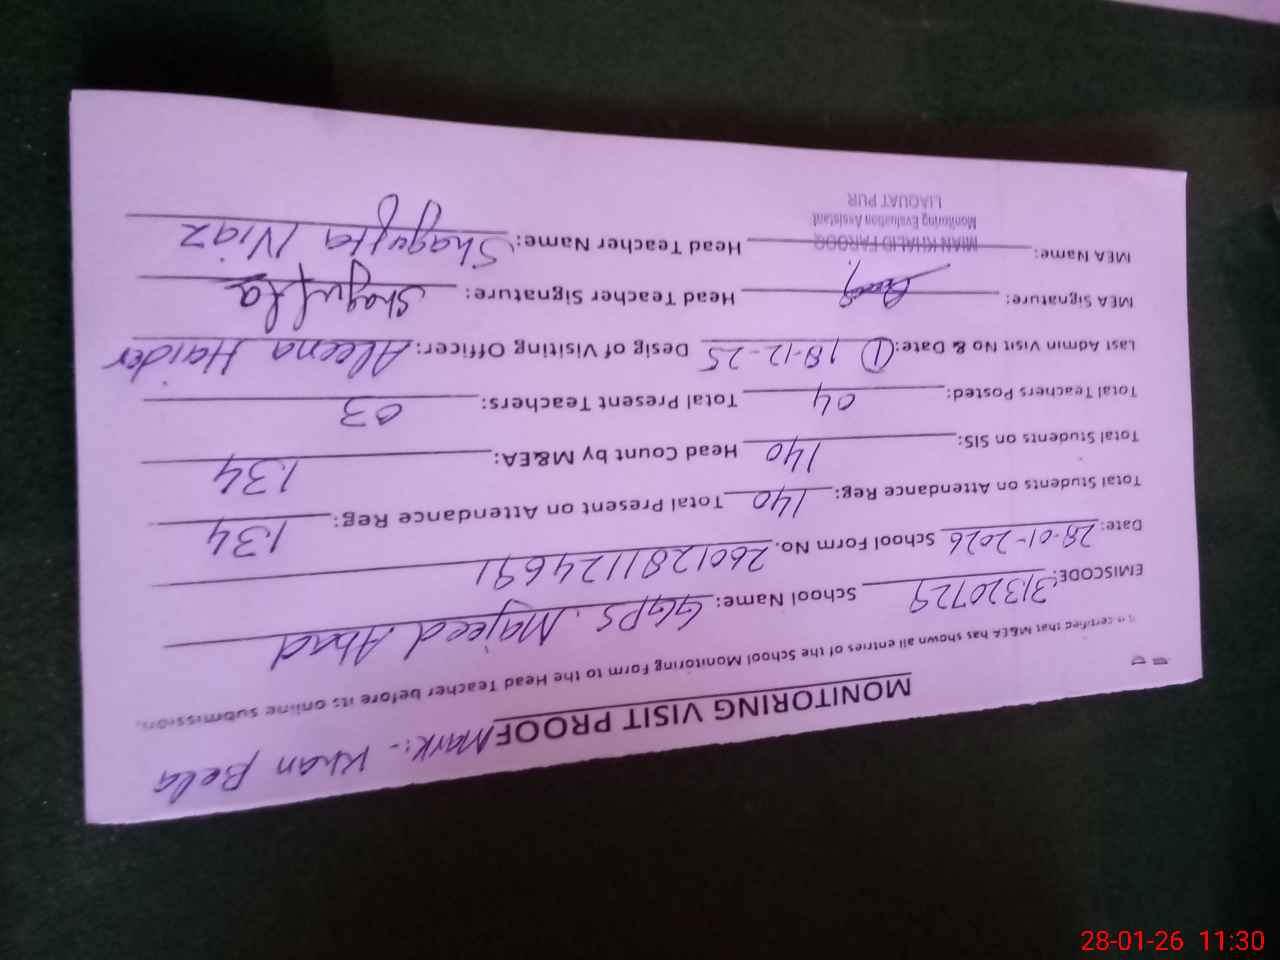 MONITORING VISIT PROOF Mark:- Khan Bela
It is certified that M&EA has shown all entries of the School Monitoring Form to the Head Teacher before its online submission.
EMISCODE: 31320729 School Name: GGPS. Majeed Abad
Date: 28-01-2026 School Form No. 2601281124691
Total Students on Attendance Reg: 140 Total Present on Attendance Reg: 134
Total Students on SIS: 140 Head Count by M&EA: 134
Total Teachers Posted: 04 Total Present Teachers: 03
Last Admin Visit No & Date: ① 18-12-25 Desig of Visiting Officer: Aleena Haider
MEA Signature: Head Teacher Signature: Shagufta
MEA Name: MIAN KHALID FAROOQ Head Teacher Name: Shagufta Niaz
Monitoring Evaluation Assistant
LIAQUAT PUR
28-01-26 11:30